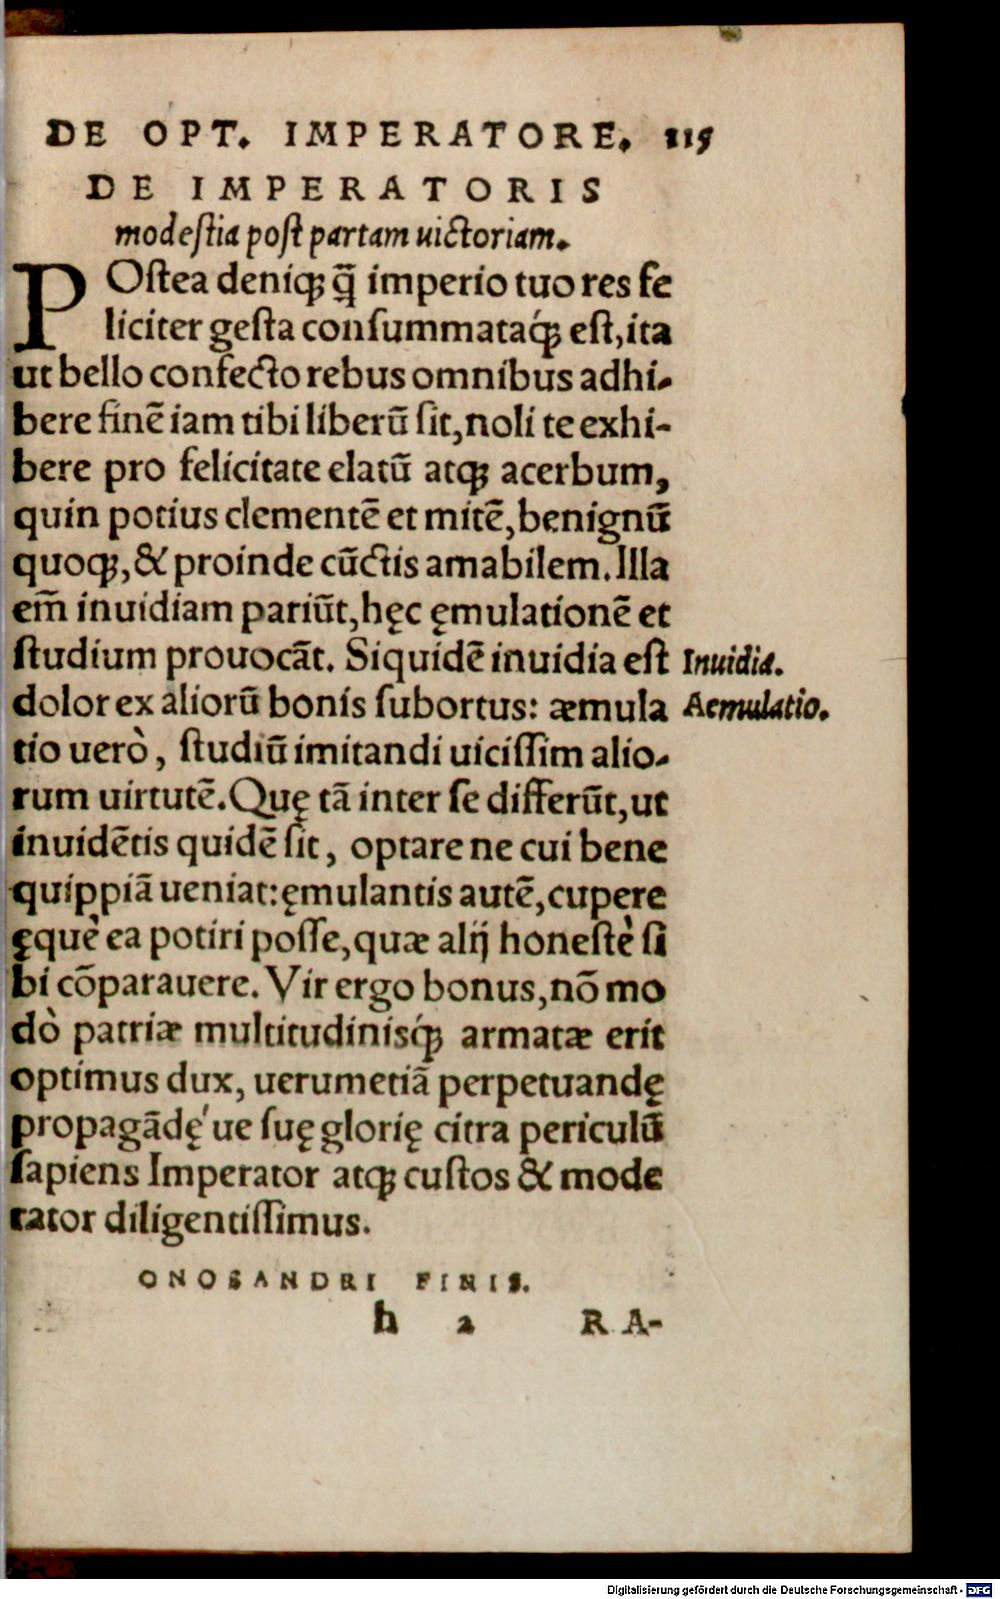 DE OPT. IMPERATORE. 115
DE IMPERATORIS
modeſtia poſt partam uictoriam.
POſtea deniqꝫ q̃ imperio tuo res fe
liciter geſta conſummataq́ꝫ eſt, ita
ut bello confecto rebus omnibus adhi-
bere finẽ iam tibi liberũ ſit, noli te exhi-
bere pro felicitate elatũ atqꝫ acerbum,
quin potius clementẽ et mitẽ, benignũ
quoqꝫ, & proinde cũctis amabilem. Illa
em̃ inuidiam pariũt, hęc ęmulationẽ et
ſtudium prouocãt. Siquidẽ inuidia eſt Inuidia.
dolor ex aliorũ bonis ſubortus: æmula Aemulatio.
tio uerò, ſtudiũ imitandi uiciſſim alio-
rum uirtutẽ. Quę tã inter ſe differũt, ut
inuidẽtis quidẽ ſit, optare ne cui bene
quippiã ueniat: ęmulantis autẽ, cupere
ęquè ea potiri poſſe, quæ alij honeſtè ſi
bi cõparauere. Vir ergo bonus, nõ mo
dò patriæ multitudinisq́ꝫ armatæ erit
optimus dux, uerumetiã perpetuandę
propagãdę́ ue ſuę glorię citra periculũ
ſapiens Imperator atqꝫ cuſtos & mode
rator diligentiſſimus.
ONOSANDRI FINIS.
h 2 RA-
Digitalisierung gefördert durch die Deutsche Forschungsgemeinschaft - DFG